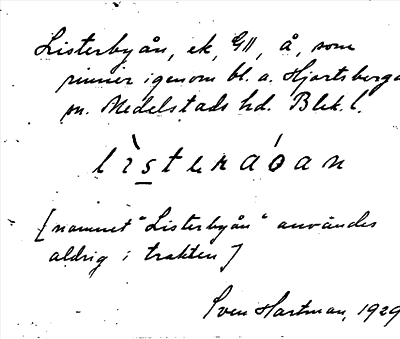 Listerbyån, ek, GII, å, som
rinner igenom bl. a. Hjortsberga
sn. Medelstads hd. Blek. l.
lìsteráoan
[namnet "Listerbyån" användes
aldrig i trakten]
Sven Hartman, 1929